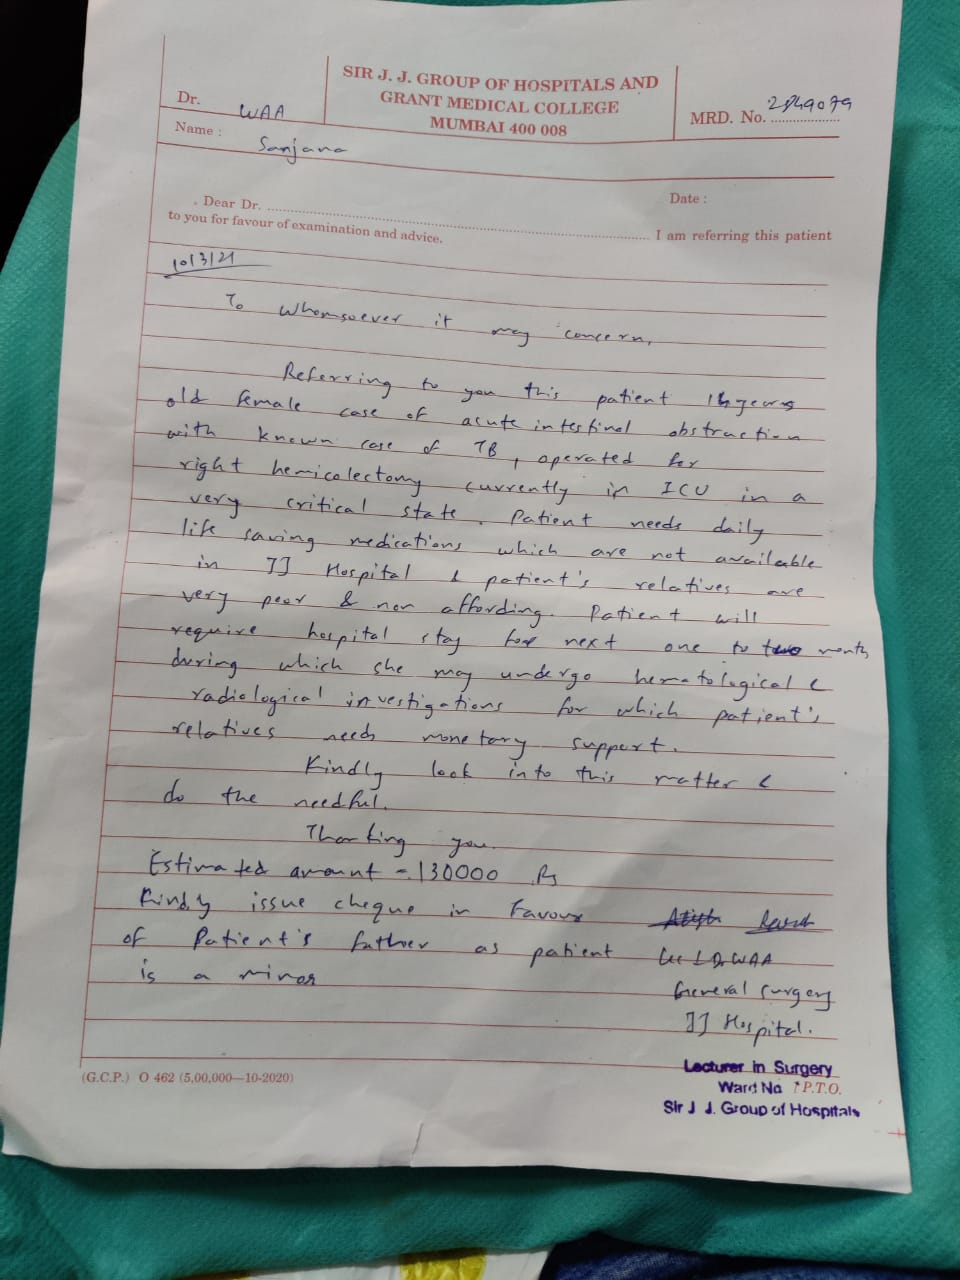 SIR J. J. GROUP OF HOSPITALS AND
GRANT MEDICAL COLLEGE
MUMBAI 400 008
Dr. WAA
MRD. No.
Name : Sanjana
Date :
Dear Dr.
I am referring this patient
to you for favour of examination and advice.
10/3/21
To whomsoever it may concern,
Referring to you this patient years
old female case of acute intestinal obstruction
with known case of TB, operated for
right hemicolectomy currently in ICU in a
very critical state. Patient needs daily
life saving medications which are not available
in JJ Hospital & patient's relatives are
very poor & non affording. Patient will
require hospital stay for next one to two months
during which she may undergo hematological &
radiological investigations for which patient's
relatives needs monetary support.
Kindly look into this matter &
do the needful.
Thanking you.
Estimated amount = 130000 Rs
Kindly issue cheque in favour
of Patient's father as patient
is a minor
WAA
General surgery
JJ Hospital.
Lecturer in Surgery
Ward No
P.T.O.
Sir J J. Group of Hospitals
(G.C.P.) O 462 (5,00,000—10-2020)